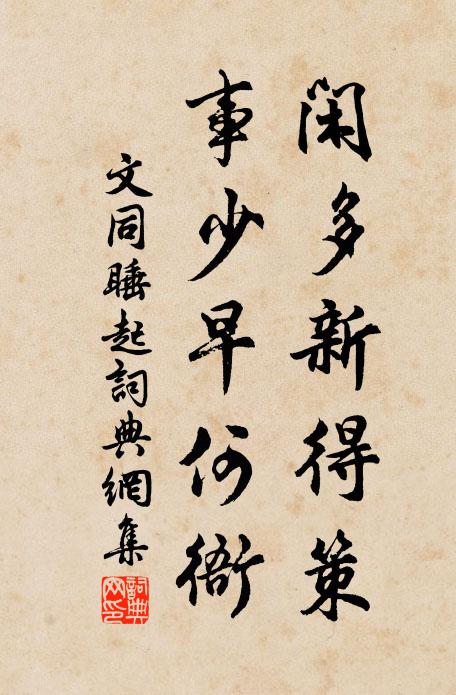 閑多新得策
事少早何衙
文同睡起詞典網集
詞典
网印